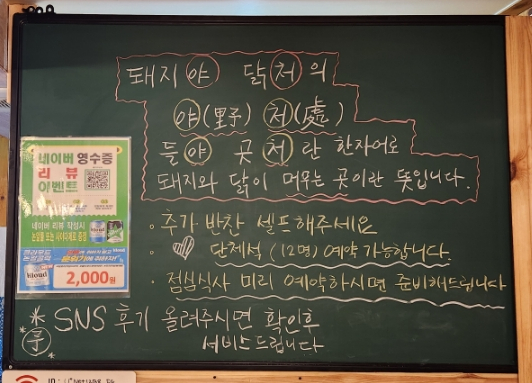 돼지야 닭처의
야(野子) 처(處)
들야 곳처란 한자어로
돼지와 닭이 머무는 곳이란 뜻입니다.
· 추가 반찬 셀프해주세요
· 단체석 (12명) 예약 가능합니다.
· 점심식사 미리 예약하시면 준비해드립니다
SNS 후기 올려주시면 확인후
서비스드립니다
네이버 영수증
리뷰
이벤트
네이버 리뷰 작성시
2,000원